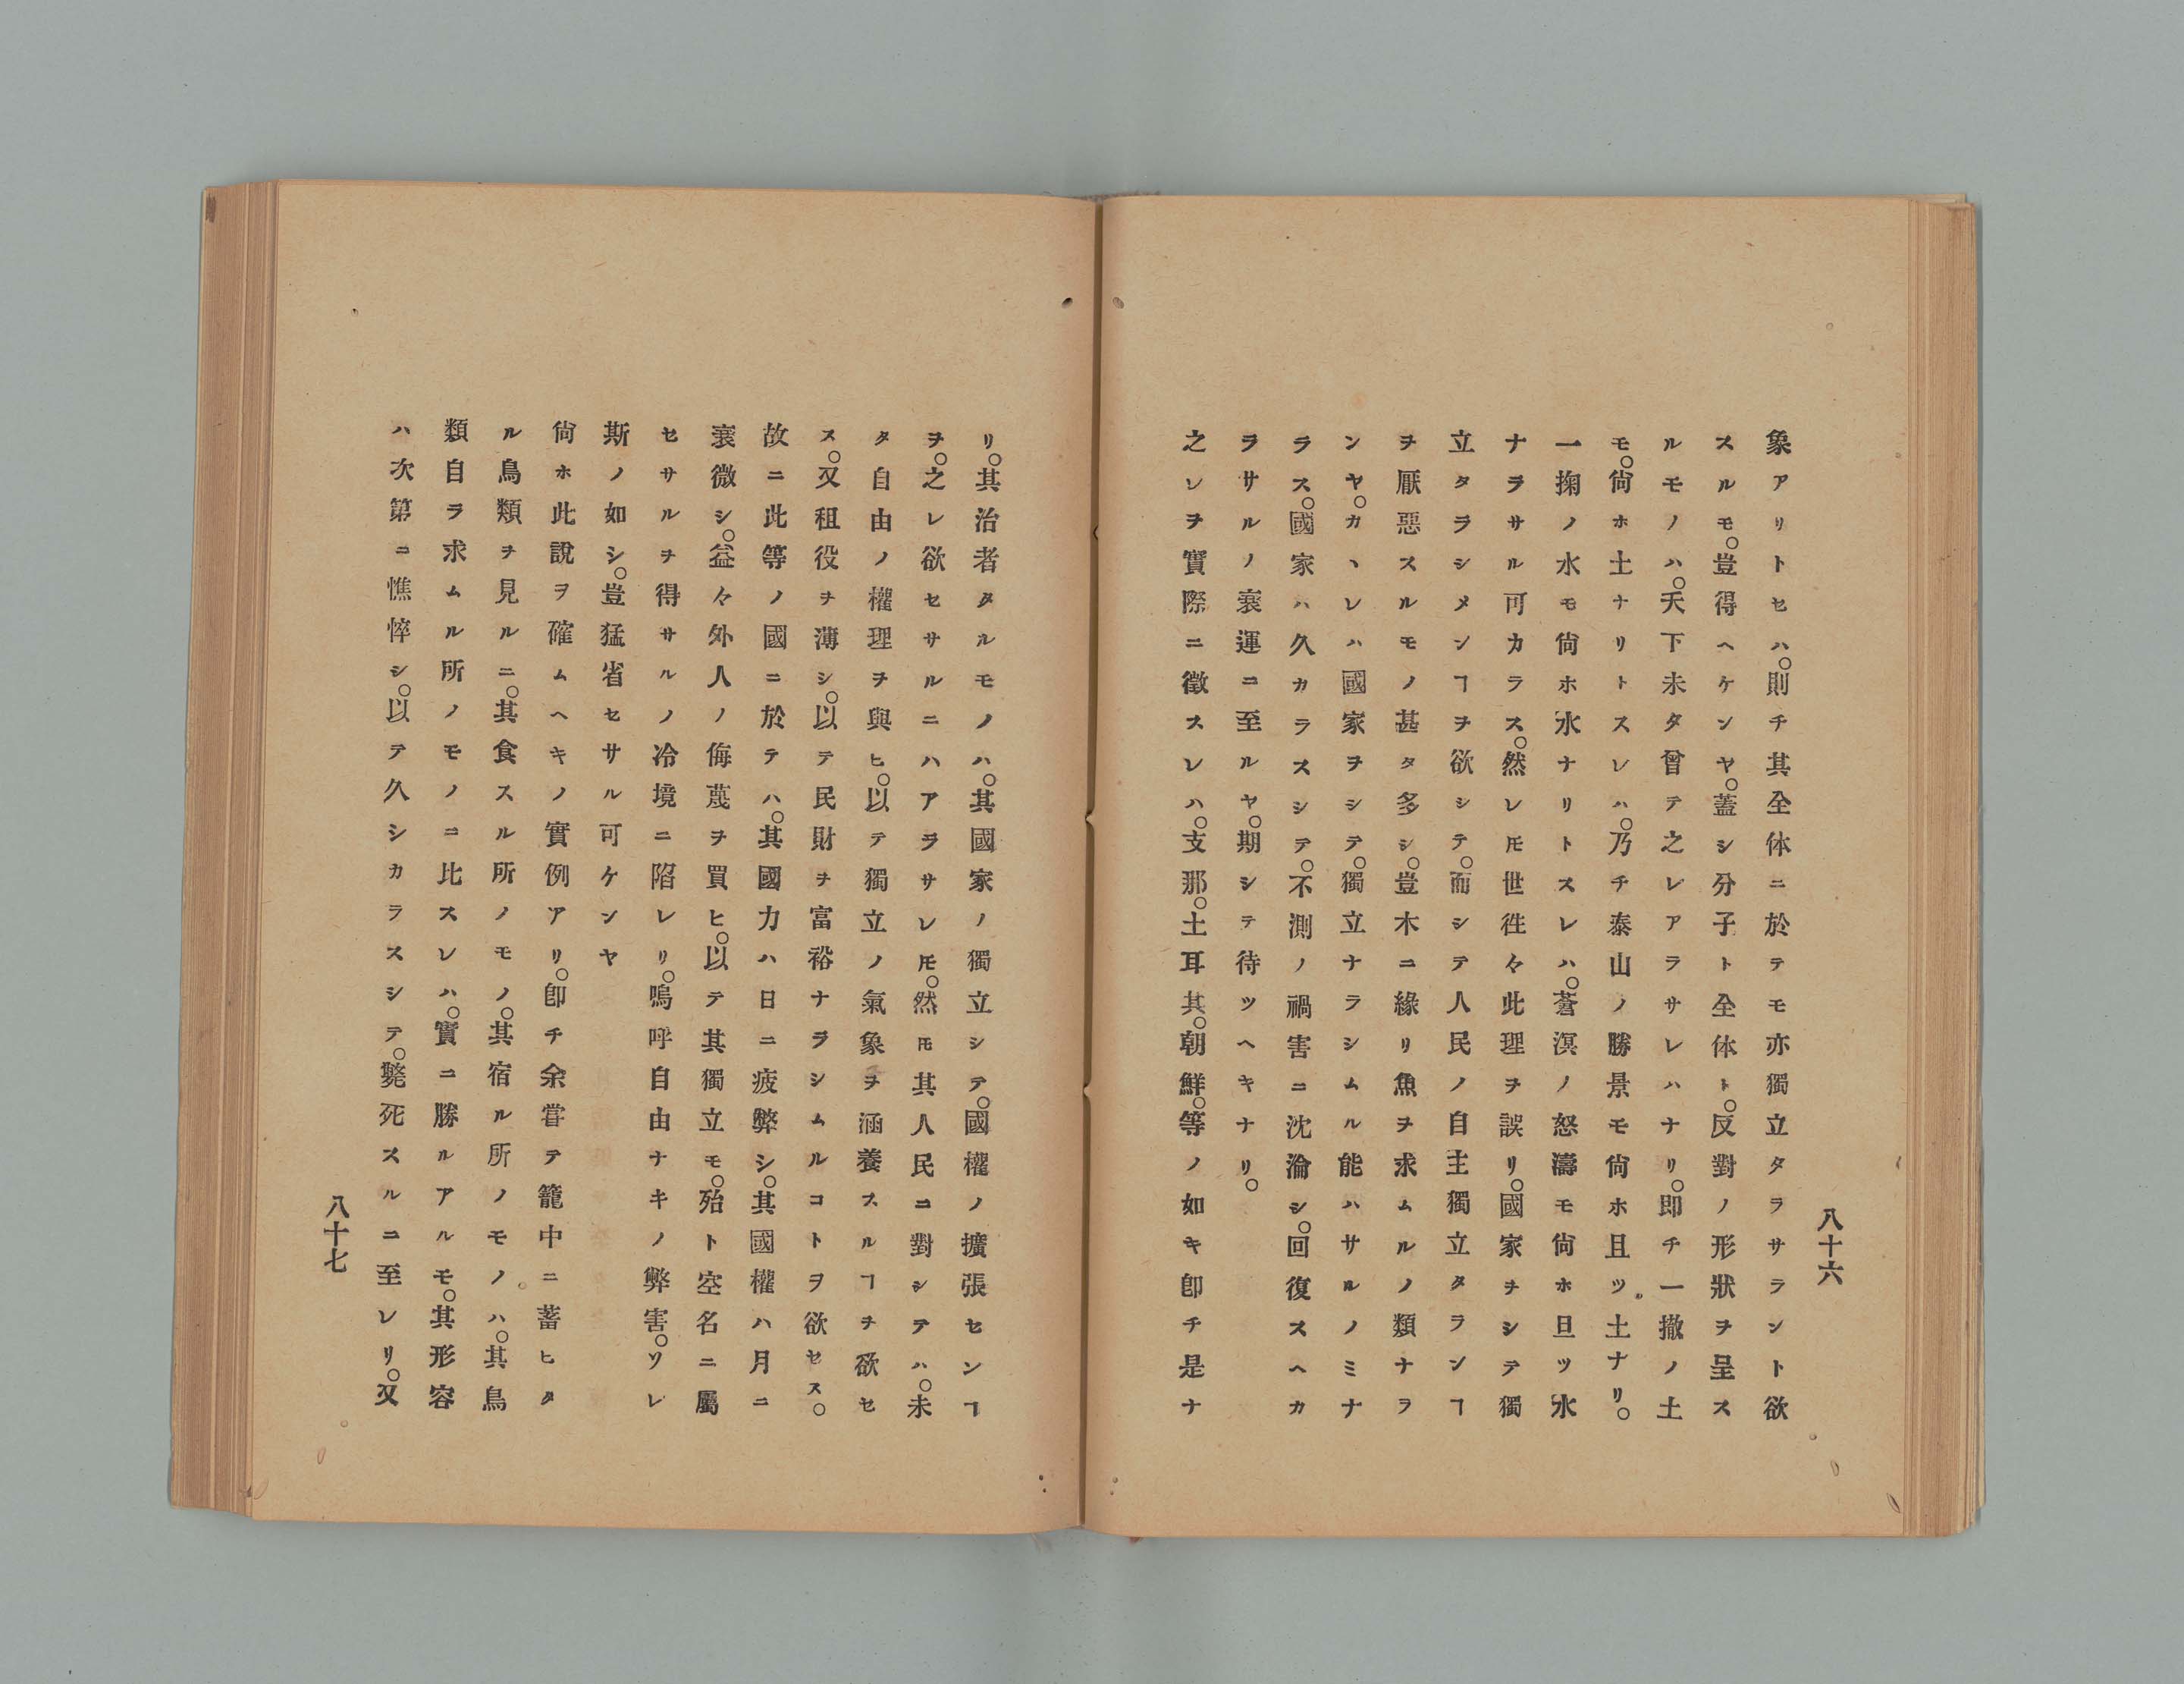 八十六
象アリトセハ。則チ其全体ニ於テモ亦獨立タラサラント欲
スルモ。豈得ヘケンヤ。蓋シ分子ト全体ト。反對ノ形狀ヲ呈ス
ルモノハ。天下未タ曾テ之レアラサレハナリ。即チ一撒ノ土
モ。尙ホ土ナリトスレハ。乃チ泰山ノ勝景モ尙ホ且ツ土ナリ。
一掬ノ水モ尙ホ水ナリトスレハ。蒼溟ノ怒濤モ尙ホ旦ツ水
ナラサル可カラス。然レ𪜈世徃々此理ヲ誤リ。國家ヲシテ獨
立タラシメンヿヲ欲シテ。而シテ人民ノ自主獨立タランヿ
ヲ厭惡スルモノ甚タ多シ。豈木ニ緣リ魚ヲ求ムルノ類ナラ
ンヤ。カヽレハ國家ヲシテ。獨立ナラシムル能ハサルノミナ
ラス。國家ハ久カラスシテ。不測ノ禍害ニ沈淪シ。回復スヘカ
ラサルノ衰運ニ至ルヤ。期シテ待ツヘキナリ。
之レヲ實際ニ徵スレハ。支那。土耳其。朝鮮。等ノ如キ卽チ是ナ
リ。其治者タルモノハ。其國家ノ獨立シテ。國權ノ擴張センヿ
ヲ。之レ欲セサルニハアラサレ𪜈。然𪜈其人民ニ對シテハ。未
タ自由ノ權理ヲ與ヒ。以テ獨立ノ氣象ヲ涵養スルヿヲ欲セ
ス。又租役ヲ薄シ。以テ民財ヲ富裕ナラシムルコトヲ欲セス。
故ニ此等ノ國ニ於テハ。其國力ハ日ニ疲弊シ。其國權ハ月ニ
衰微シ。益々外人ノ侮蔑ヲ買ヒ。以テ其獨立モ。殆ト空名ニ屬
セサルヲ得サルノ冷境ニ陷レリ。嗚呼自由ナキノ弊害。ソレ
斯ノ如シ。豈猛省セサル可ケンヤ
尙ホ此說ヲ確ムヘキノ實例アリ。卽チ余嘗テ籠中ニ蓄ヒタ
ル鳥類ヲ見ルニ。其食スル所ノモノ。其宿ル所ノモノハ。其鳥
類自ラ求ムル所ノモノニ比スレハ。實ニ勝ルアルモ。其形容
ハ次第ニ憔悴シ。以テ久シカラスシテ。斃死スルニ至レリ。又
八十七